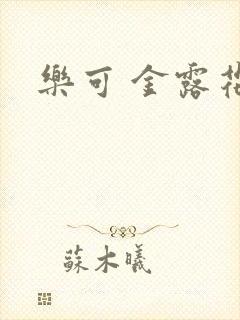 樂可 金露花
蘇木曦